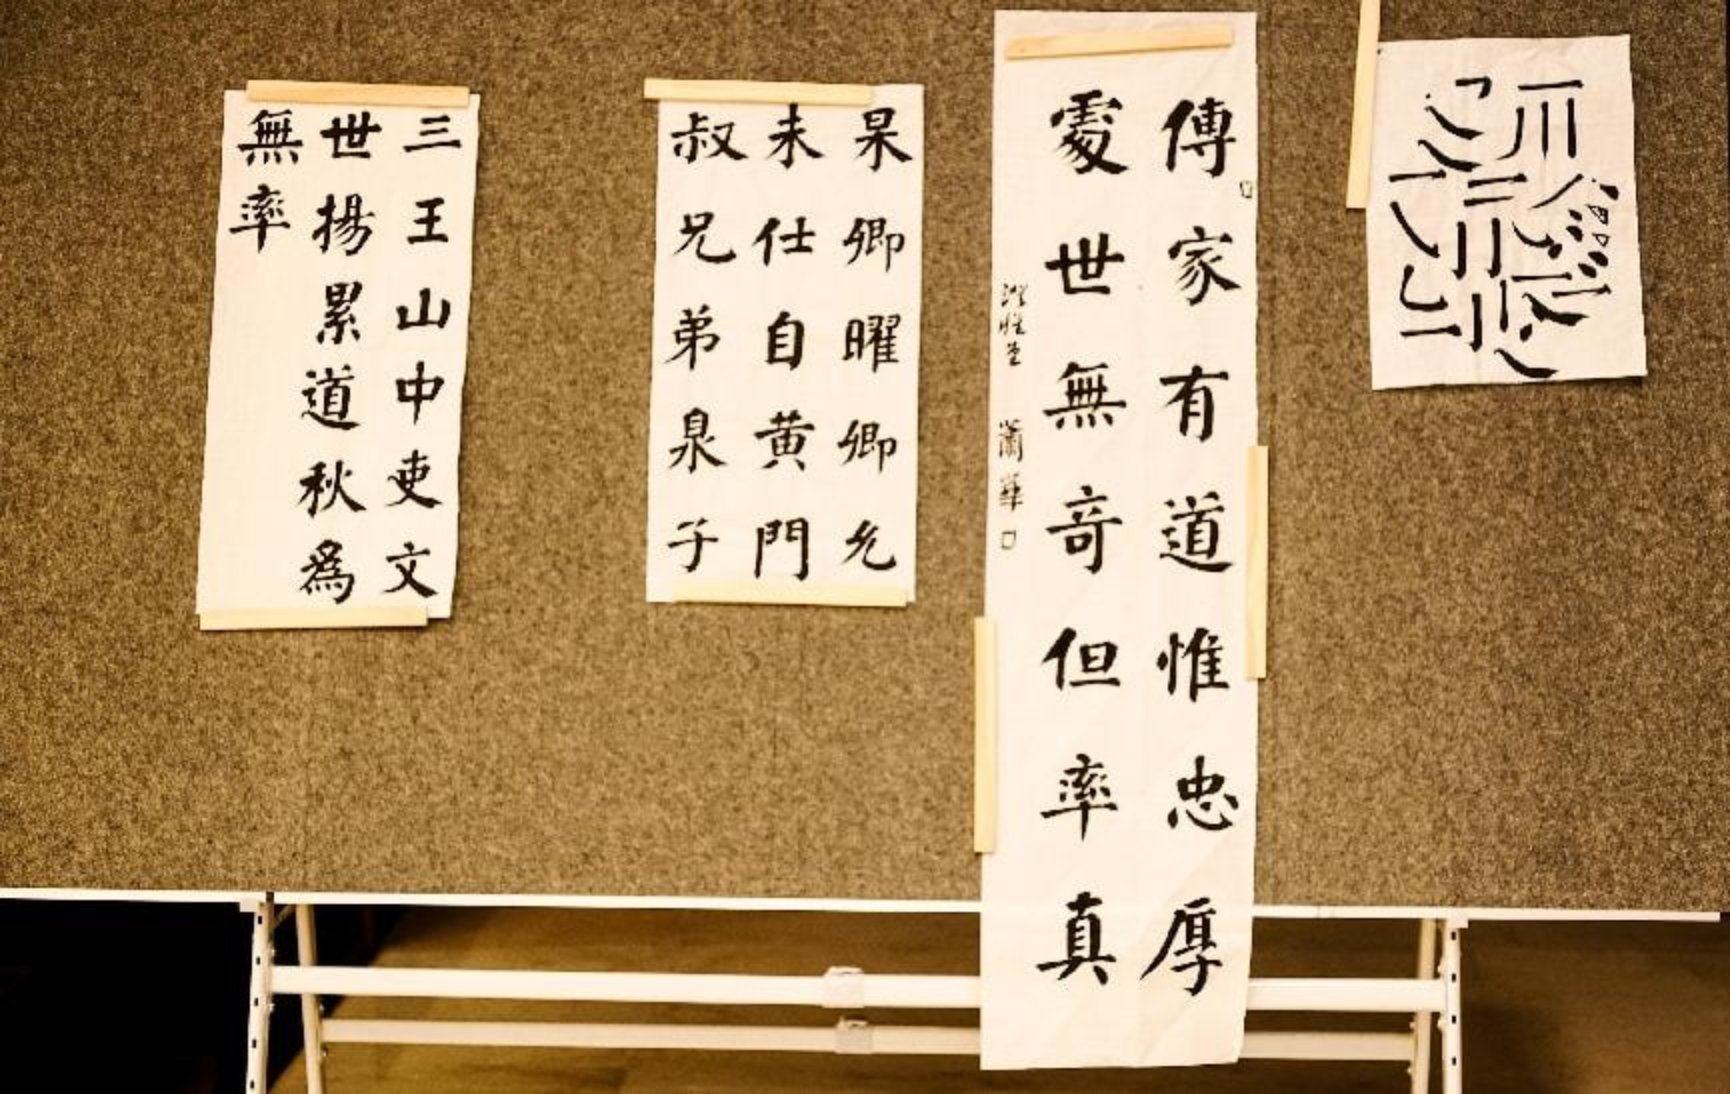 傳家有道惟忠厚
處世無奇但率真
杲卿曜卿允
未仕自黄門
叔兄弟泉子
三王山中吏文
世揚累道秋為
無率